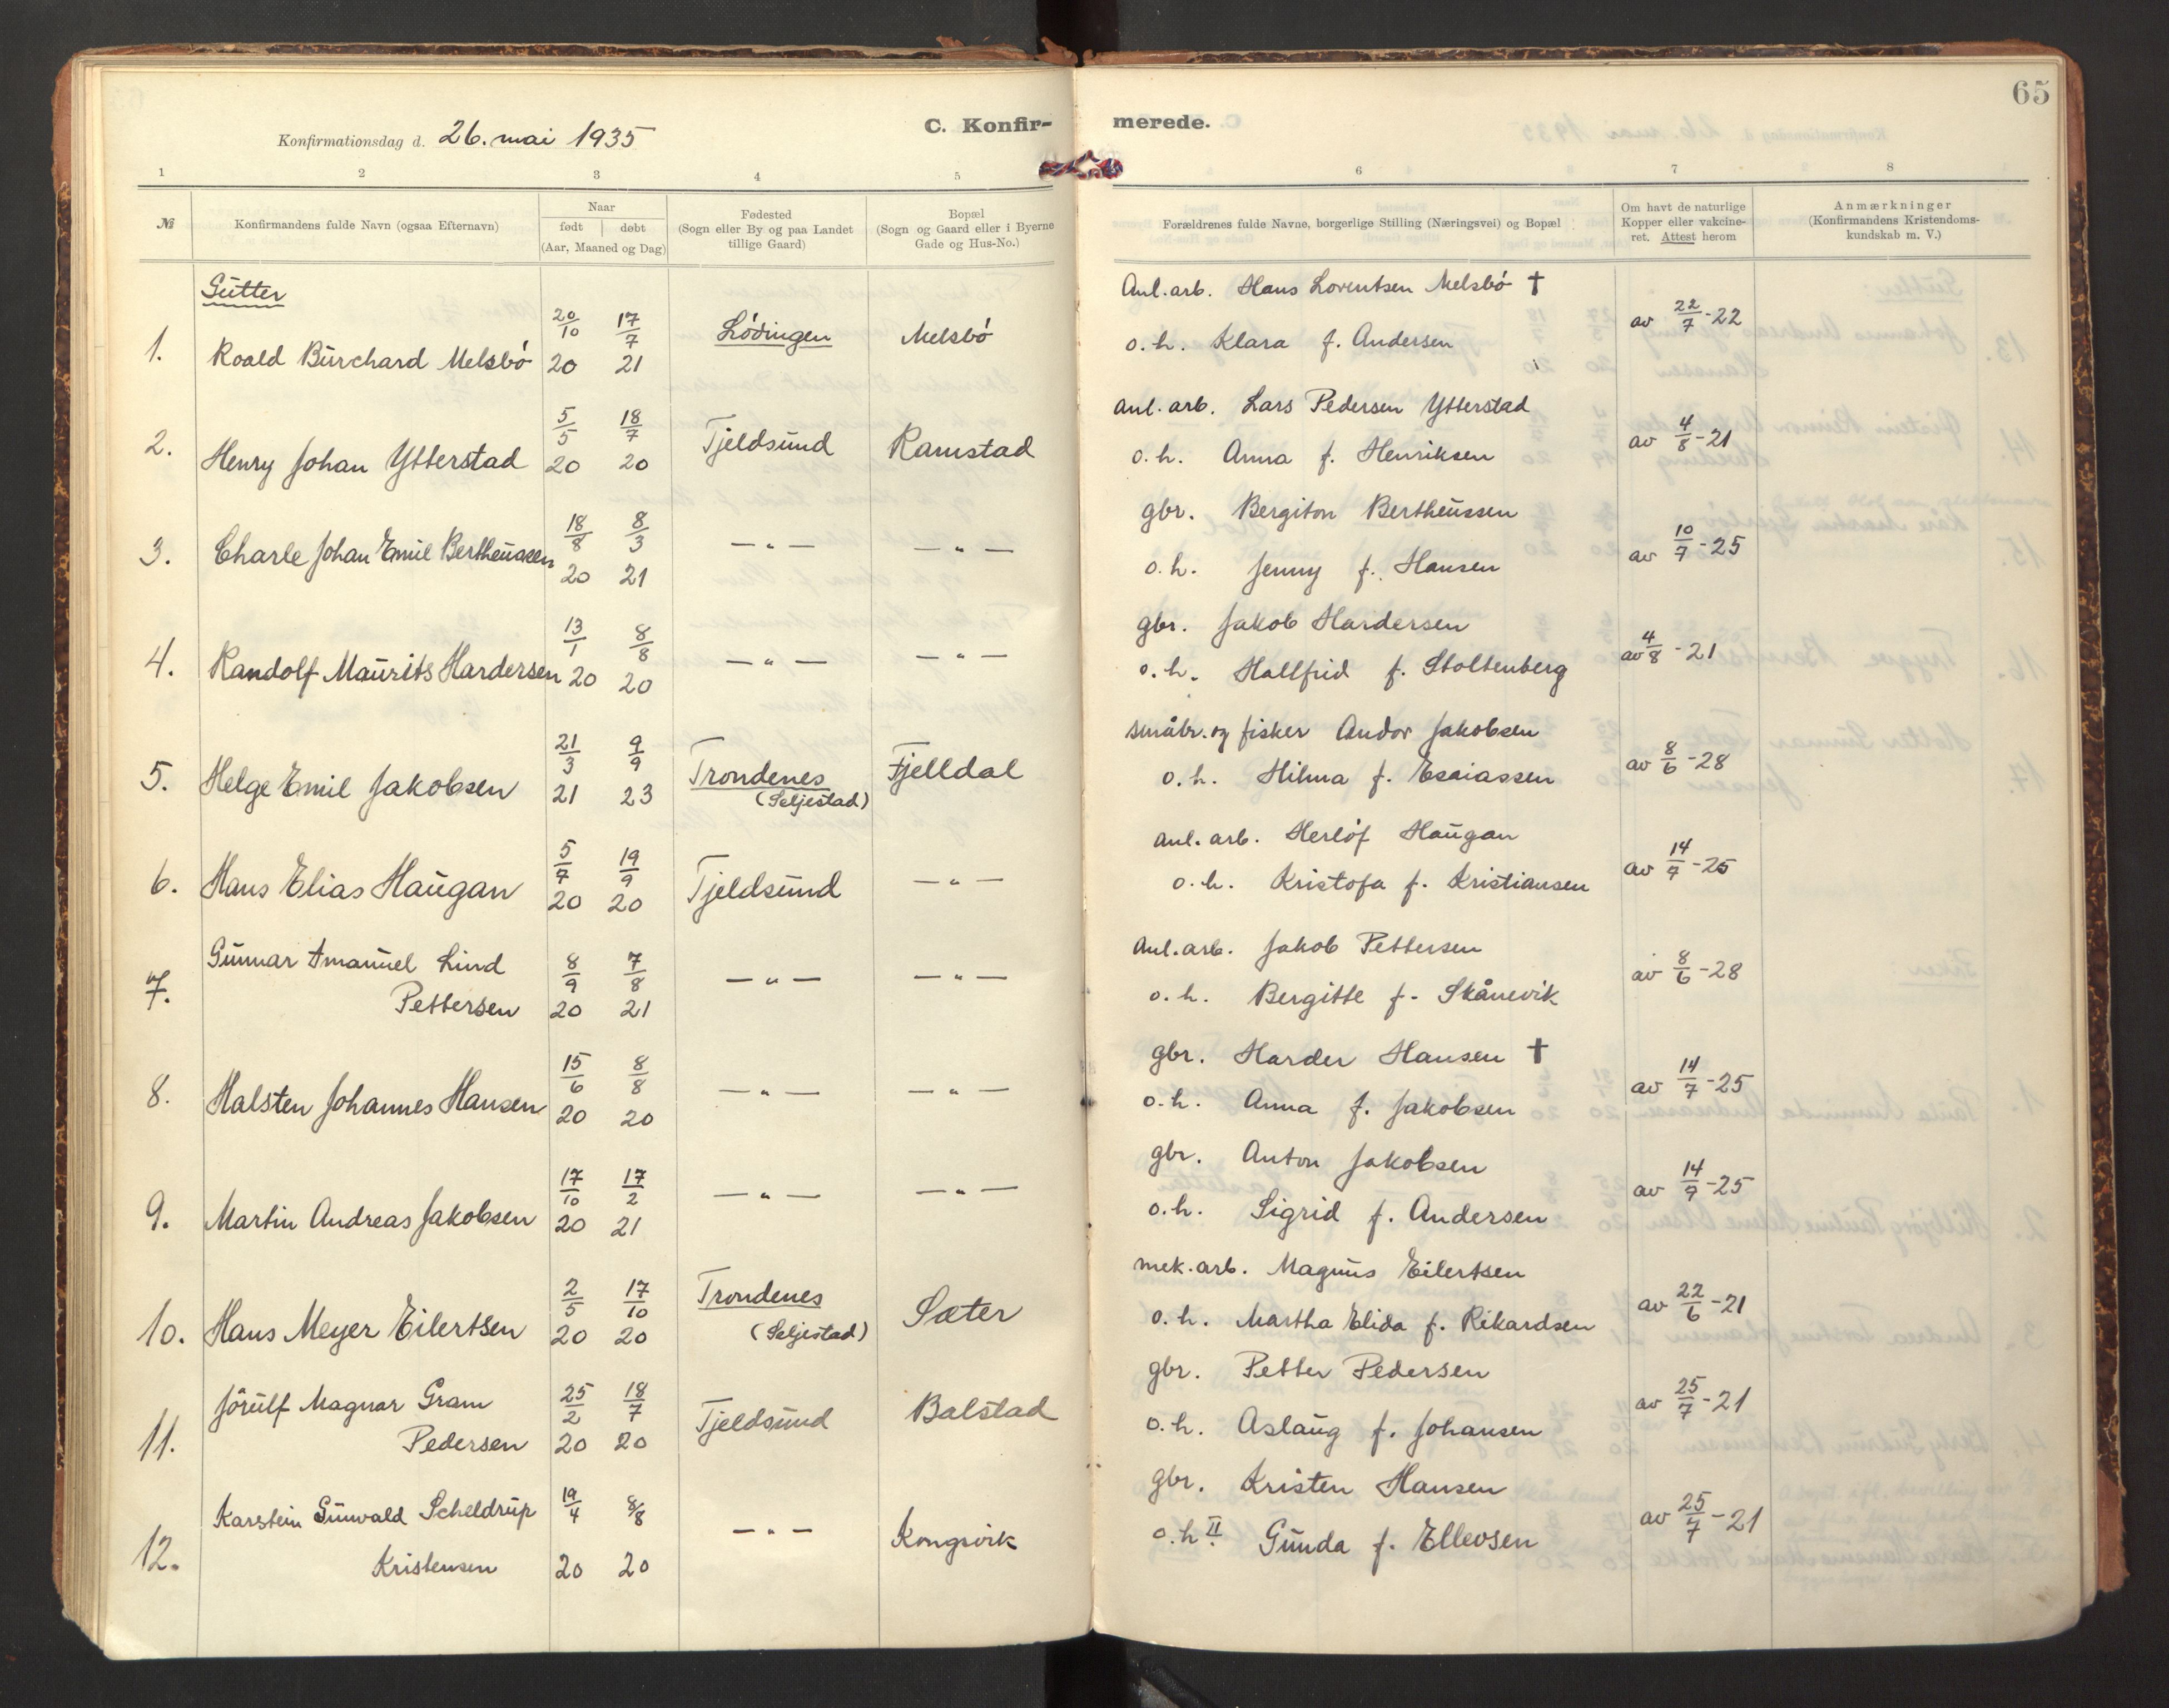 65
C. Konfir-
merede.
Konfirmationsdag d. 26. mai 1935
1 2 3 4 5 6 7 8
№ Konfirmandens fulde Navn (ogsaa Efternavn) Naar født døbt (Aar, Maaned og Dag) Fødested (Sogn eller By og paa Landet tillige Gaard) Bopæl (Sogn og Gaard eller i Byerne Gade og Hus-No.) Forældrenes fulde Navne, borgerlige Stilling (Næringsvei) og Bopæl Om havt de naturlige Kopper eller vakcineret. Attest herom Anmærkninger (Konfirmandens Kristendomskundskab m. V.)
Gutter
Anl. arb. Hans Lorentsen Melsbö †
1. Roald Burchard Melsbö 20/10 20 17/7 21 Lödingen Melsbö o. h. Klara f. Andersen av 22/7-22
Anl. arb. Lars Pedersen Ytterstad
2. Henry Johan Ytterstad 5/5 20 18/7 20 Tjeldsund Ramstad o. h. Anna f. Henriksen av 4/8-21
gbr. Bergiton Bertheussen
3. Charle Johan Emil Bertheussen 18/8 20 8/3 21 — " — — " — o. h. Jenny f. Hansen av 10/7-25
gbr. Jakob Hardersen
4. Randolf Maurits Hardersen 13/1 20 8/8 20 — " — — " — o. h. Hallfrid f. Stoltenberg av 4/8-21
småbr. og fisker Andor Jakobsen
5. Helge Emil Jakobsen 21/3 21 9/9 23 Trondenes (Seljestad) Fjelldal o. h. Hilma f. Esaiassen av 8/6-28
Anl. arb. Herlöf Haugan
6. Hans Elias Haugan 5/7 20 19/9 20 Tjeldsund — " — o. h. Kristofa f. Kristiansen av 14/7-25
Anl. arb. Jakob Pettersen
7. Gunnar Amanuel Lind
Pettersen 8/9 20 7/8 21 — " — — " — o. h. Bergitte f. Skånevik av 8/6-28
gbr. Harder Hansen †
8. Halsten Johannes Hansen 15/6 20 8/8 20 — " — — " — o. h. Anna f. Jakobsen av 14/7-25
gbr. Anton Jakobsen
9. Martin Andreas Jakobsen 17/10 20 17/2 21 — " — — " — o. h. Sigrid f. Andersen av 14/9-25
mek. arb. Magnus Eilertsen
10. Hans Meyer Eilertsen 2/5 20 17/10 20 Trondenes (Seljestad) Sæter o. h. Martha Elida f. Rikardsen av 22/6-21
gbr. Petter Pedersen
11. Jörulf Magnar Gram
Pedersen 25/2 20 18/7 20 Tjeldsund Balstad o. h. Aslaug f. Johansen av 25/7-21
gbr. Kristen Hansen
12. Karstein Gunvald Scheldrup
Kristensen 19/4 20 8/8 20 — " — Kongsvik o. h. II Gunda f. Ellevsen av 25/7-21